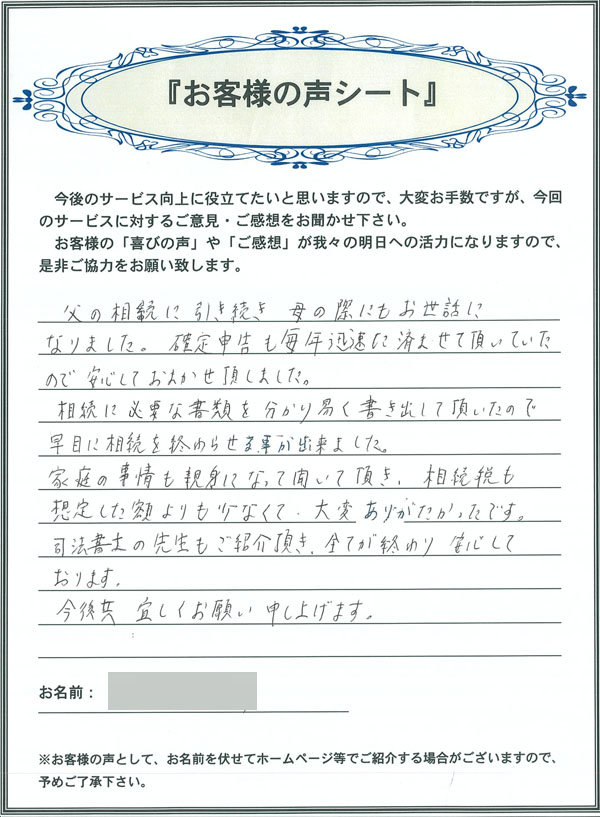 『お客様の声シート』
今後のサービス向上に役立てたいと思いますので、大変お手数ですが、今回
のサービスに対するご意見・ご感想をお聞かせ下さい。
お客様の「喜びの声」や「ご感想」が我々の明日への活力になりますので、
是非ご協力をお願い致します。
父の相続に引き続き 母の際にもお世話に
なりました。確定申告も毎年迅速に済ませて頂いていた
ので安心しておまかせ頂しました。
相続に必要な書類を分かり易く書き出して頂いたので
早目に相続を終わらせる事が出来ました。
家庭の事情も親身になって聞いて頂き、相続税も
想定した額よりも少なくて、大変 ありがたかったです。
司法書士の先生もご紹介頂き、全てが終わり 安心して
おります。
今後共 宜しくお願い申し上げます。
お名前：
※お客様の声として、お名前を伏せてホームページ等でご紹介する場合がございますので、
予めご了承下さい。